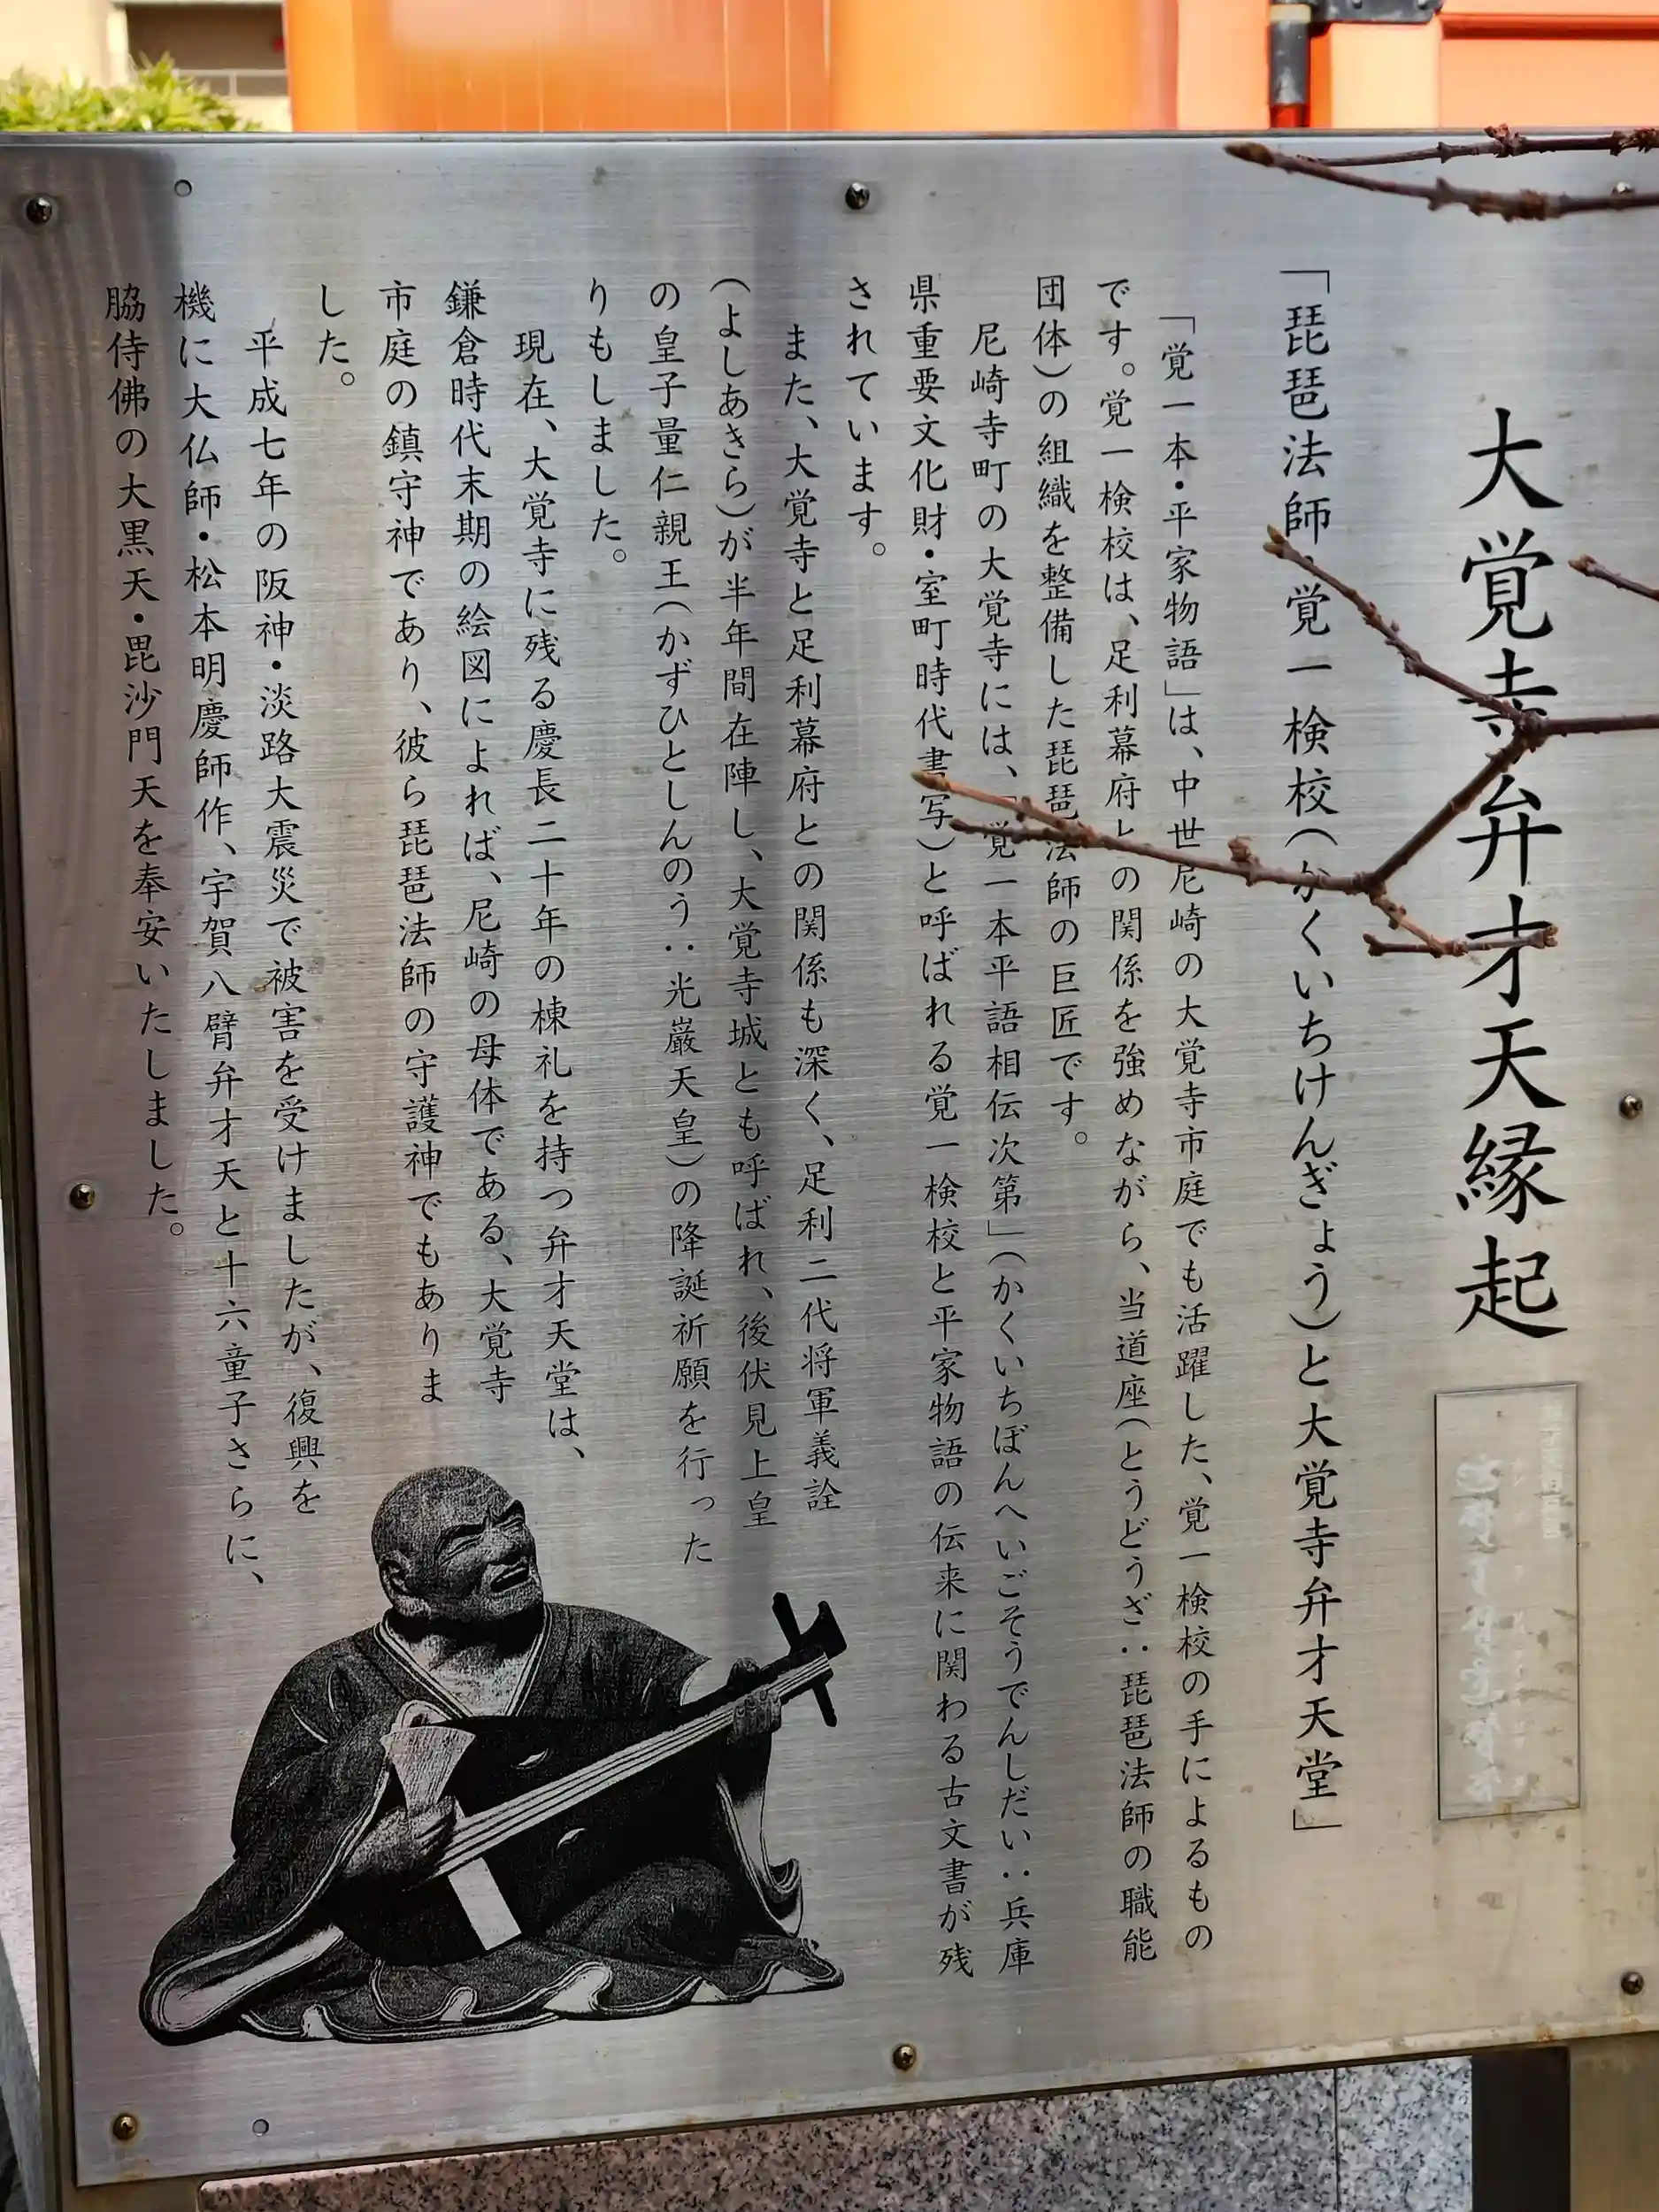 大覚寺弁才天縁起
「琵琶法師・覚一検校(かくいちけんぎょう)と大覚寺弁才天堂」
「覚一本・平家物語」は、中世尼崎の大覚寺市庭でも活躍した、覚一検校の手によるもの
です。覚一検校は、足利幕府との関係を強めながら、当道座(とうどうざ：琵琶法師の職能
団体)の組織を整備した琵琶法師の巨匠です。
尼崎寺町の大覚寺には、「覚一本平語相伝次第」(かくいちぼんへいごそうでんしだい：兵庫
県重要文化財・室町時代書写)と呼ばれる覚一検校と平家物語の伝来に関わる古文書が残
されています。
また、大覚寺と足利幕府との関係も深く、足利二代将軍義詮
(よしあきら)が半年間在陣し、大覚寺城とも呼ばれ、後伏見上皇
の皇子量仁親王(かずひとしんのう：光巌天皇)の降誕祈願を行った
りもしました。
現在、大覚寺に残る慶長二十年の棟札を持つ弁才天堂は、
鎌倉時代末期の絵図によれば、尼崎の母体である、大覚寺
市庭の鎮守神であり、彼ら琵琶法師の守護神でもありま
した。
平成七年の阪神・淡路大震災で被害を受けましたが、復興を
機に大仏師・松本明慶師作、宇賀八臂弁才天と十六童子さらに、
脇侍佛の大黒天・毘沙門天を奉安いたしました。